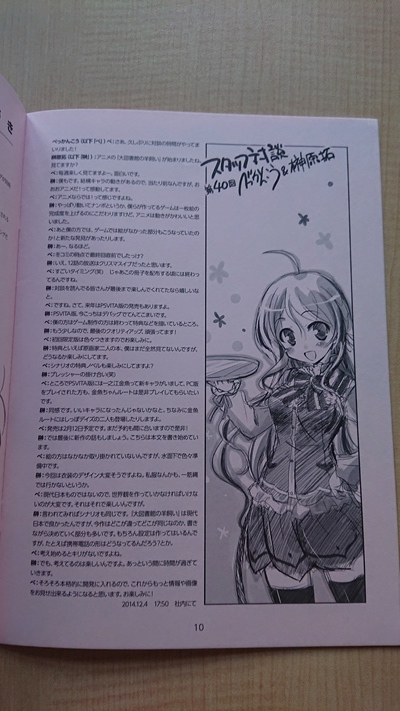 スタッフ対談
第40回
べっかんこう&榊原拓
べっかんこう(以下「べ」) べ:さぁ、久しぶりに対談の時間がやってま
いりました!
榊原拓(以下「榊」) :アニメの『大図書館の羊飼い』が始まりましたね。
見てますか?
べ:毎週楽しく見てますよ~。面白いです。
榊:僕もです。結構キャラの動きがあるので、当たり前なんですが、お
おおアニメだって感動してます。
べ:アニメならでは!って感じですよね。
榊:やっぱり動いてナンボというか。僕らが作ってるゲームは一枚絵の
完成度を上げるのにこだわりますけど、アニメは動きがかわいいと思
いました。
べ:あと僕の方では、ゲームでは絵がなかった部分もこうなっていたの
か!と新たな発見があったりします。
榊:あー、なるほど。
べ:冬コミの時点で最終回直前でしたっけ?
榊:いえ、12話の放送はクリスマスイブだったと思います。
べ:すごいタイミング(笑) じゃあこの冊子を配ってる頃には終わっ
てるんですね。
榊:対談を読んでる皆さんが最後まで楽しんでくれてたなら嬉しいな
と。
べ:ですね。さて、来年はPSVITA版の発売もありますよ。
榊:PSVITA版、今こっちはデバッグでてんてこまいです。
べ:僕の方はゲーム制作の方は終わって特典などを描いているところ。
榊:もう少しなので、最後のクオリティアップ、頑張ってます!
べ:初回限定版は色々つきますのでお楽しみに。
榊:特典といえば原画家二人の本、僕はまだ全然見てないんですが、
どうなるか楽しみにしてます。
べ:シナリオの特典ノベルも楽しみにしてますよ。
榊:プレッシャーの掛け合い(笑)
べ:ところでPSVITA版には一之江金魚って新キャラがいまし、PC版
をプレイされた方も、金魚ちゃんルートは是非プレイしてもらいたい
です。
榊:同感です。いいキャラになったんじゃないかなと。ちなみに金魚
ルートにはしっぽデイズの二人も登場したりしますよ。
べ:発売は2月12日予定です。まだ予約も間に合いますので是非!
榊:では最後に新作の話もしましょう。こちらは本文を書き始めてい
ます。
べ:絵の方はなかなか取り掛れていないんですが、水面下で色々準
備中です。
榊:今回は衣装のデザイン大変そうですよね。私服なんかも、一筋縄
では行かないというか。
べ:現代日本ものではないので、世界観を作っていかなければいけな
いのが大変です。それはそれで楽しいんですが。
榊:言われてみればシナリオも同じです。『大図書館の羊飼い』は現代
日本で良かったんですが、今作はどこが違ってどこが同じなのか、書き
ながら決めていく部分も多いです。もちろん設定は作ってはいるんで
すが、たとえば携帯電話の形はどうなってるんだろう?とか。
べ:考え始めるとキリがないですよね。
榊:でも、考えてるのは楽しいんですよ。あっという間に時間が過ぎて
いきます。
べ:そろそろ本格的に開発に入れるので、これからもっと情報や画像
をお見せ出来るようになると思います。お楽しみに!
2014.12.4 17:50 社内にて
10